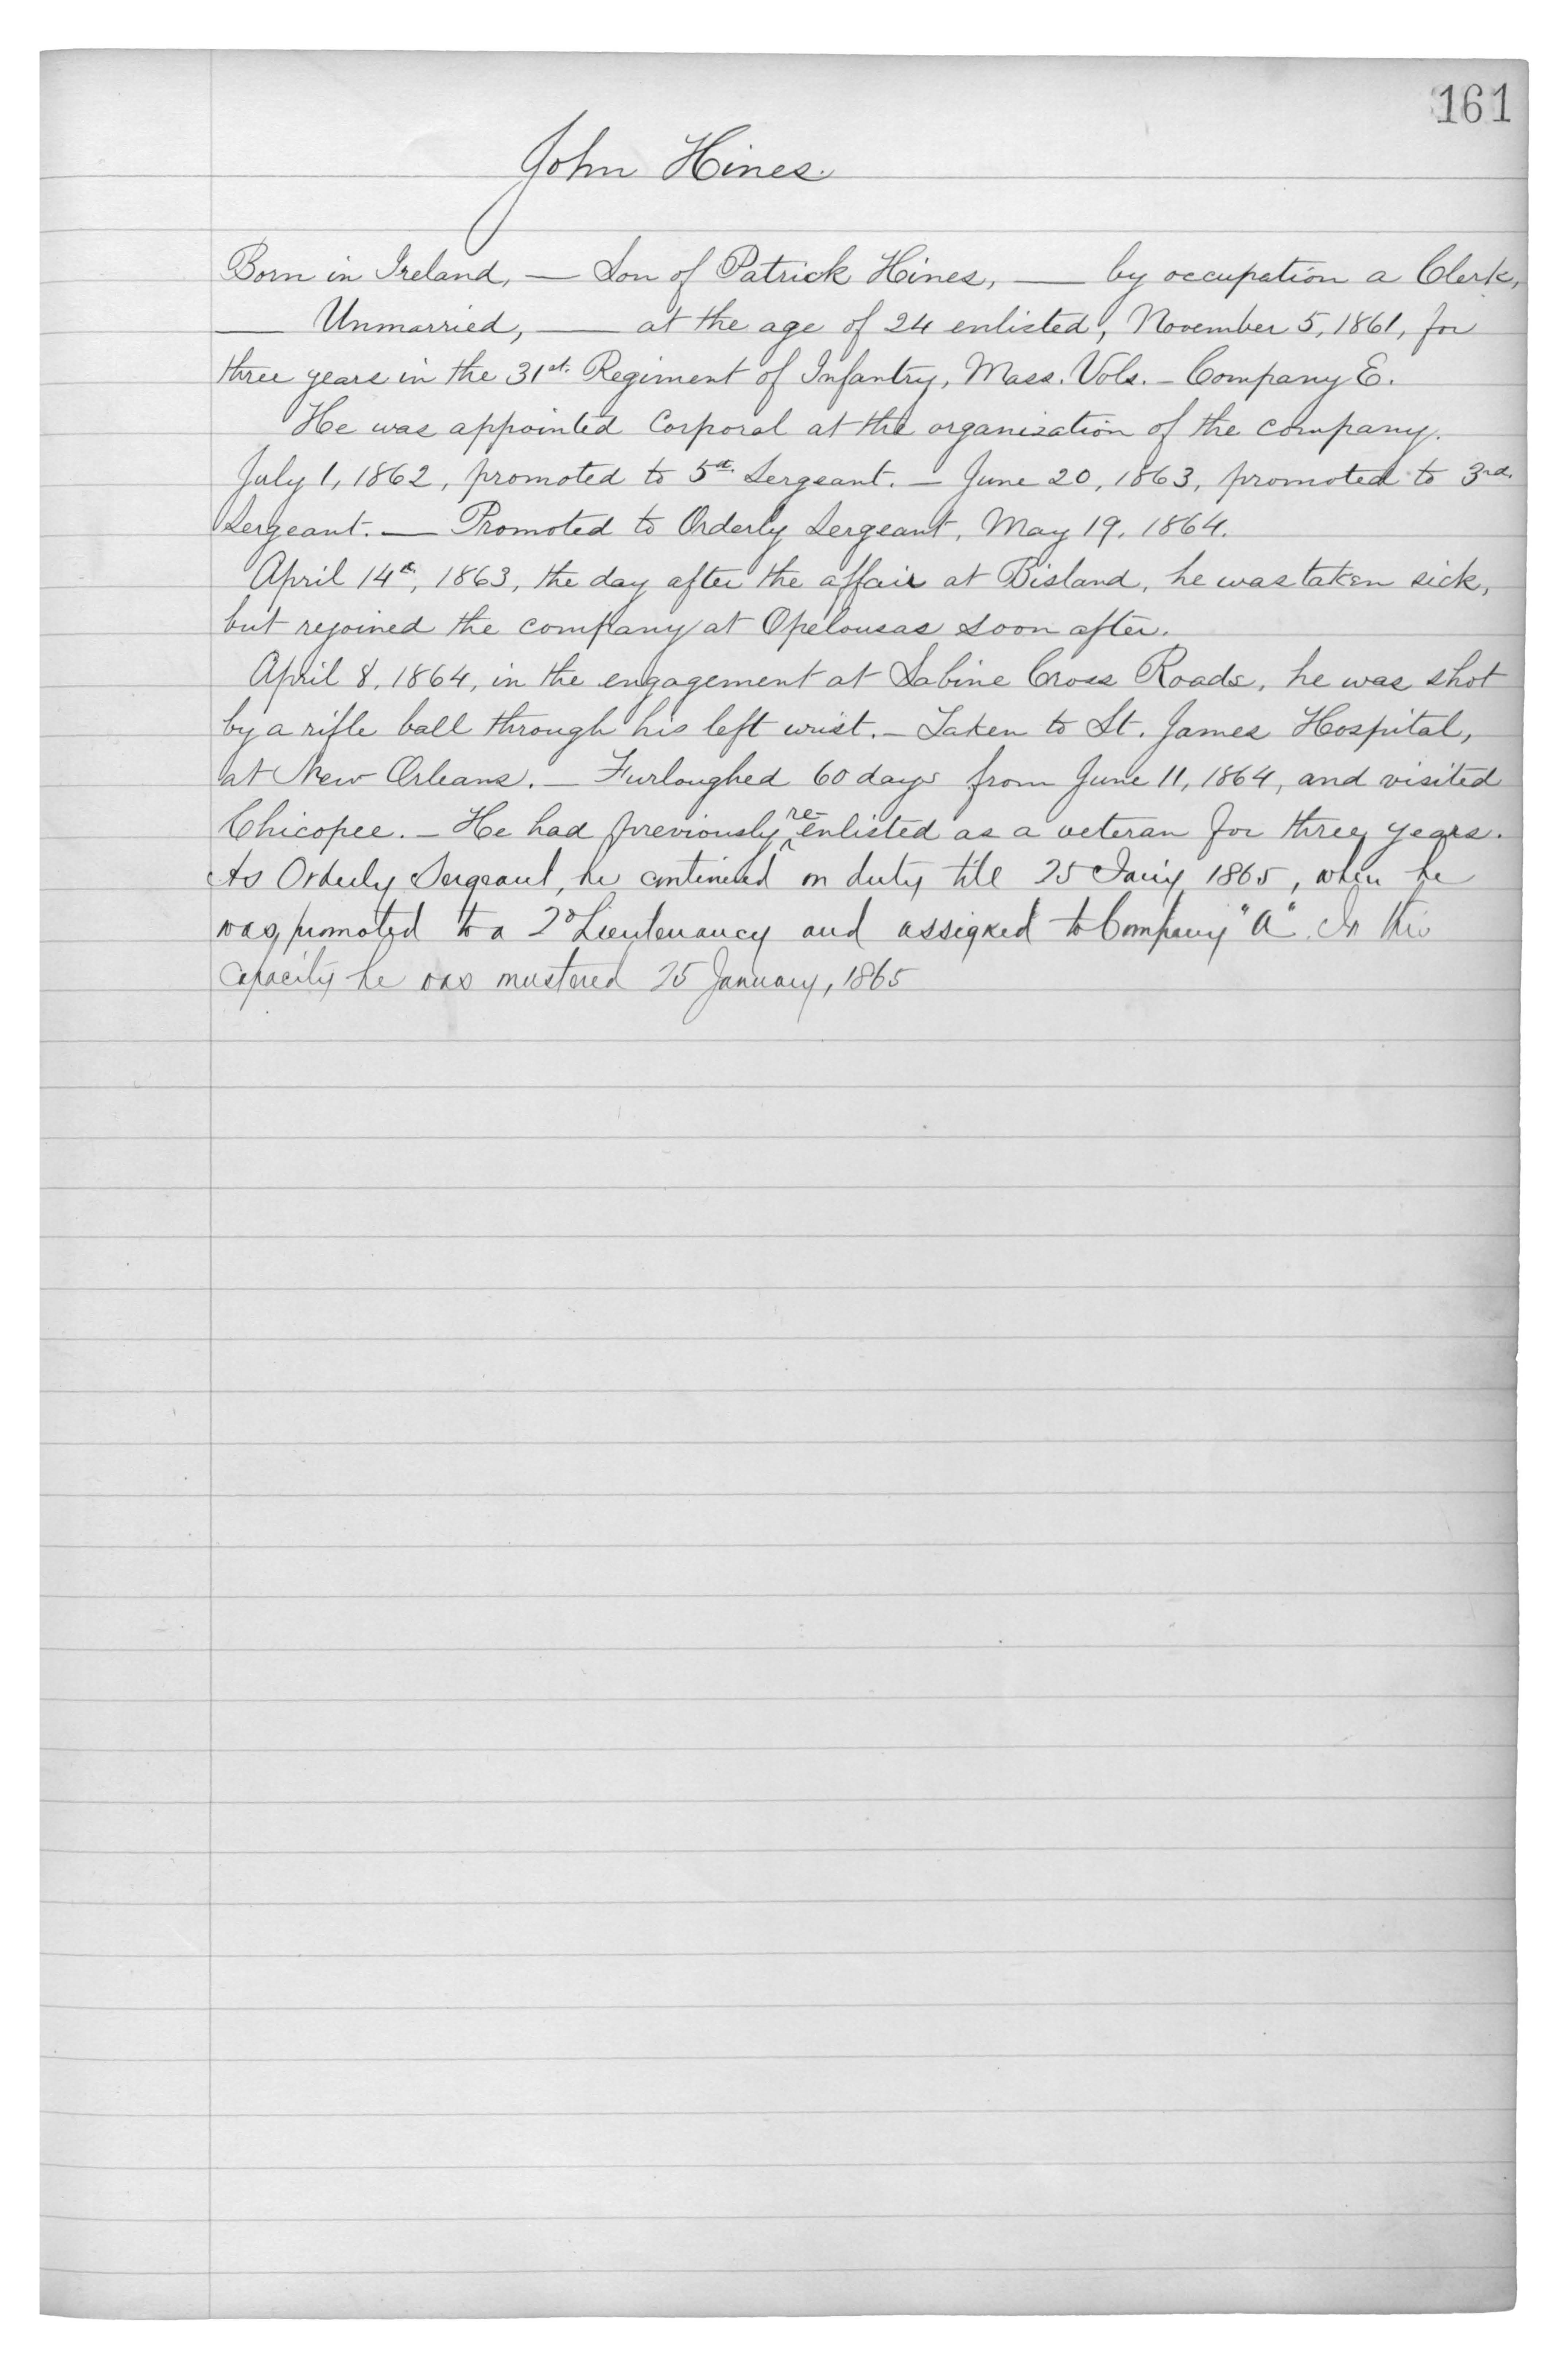 161
John Hines.
Born in Ireland, — Son of Patrick Hines, — by occupation a Clerk,
— Unmarried, — at the age of 24 enlisted, November 5, 1861, for
three years in the 31st. Regiment of Infantry, Mass. Vols. - Company E.
He was appointed Corporal at the organization of the company.
July 1, 1862, promoted to 5th. Sergeant. - June 20, 1863, promoted to 3rd.
Sergeant. — Promoted to Orderly Sergeant, May 19, 1864.
April 14th, 1863, the day after the affair at Bisland, he was taken sick,
but rejoined the company at Opelousas soon after.
April 8, 1864, in the engagement at Sabine Cross Roads, he was shot
by a rifle ball through his left wrist. - Taken to St. James Hospital,
at New Orleans. - Furloughed 60 days from June 11, 1864, and visited
Chicopee. - He had previously re-enlisted as a veteran for three years.
As Orderly Sergeant, he continued on duty till 25 Jan'y 1865, when he
was promoted to a 2d Lieutenancy and assigned to Company "A". In this
capacity he was mustered 25 January, 1865